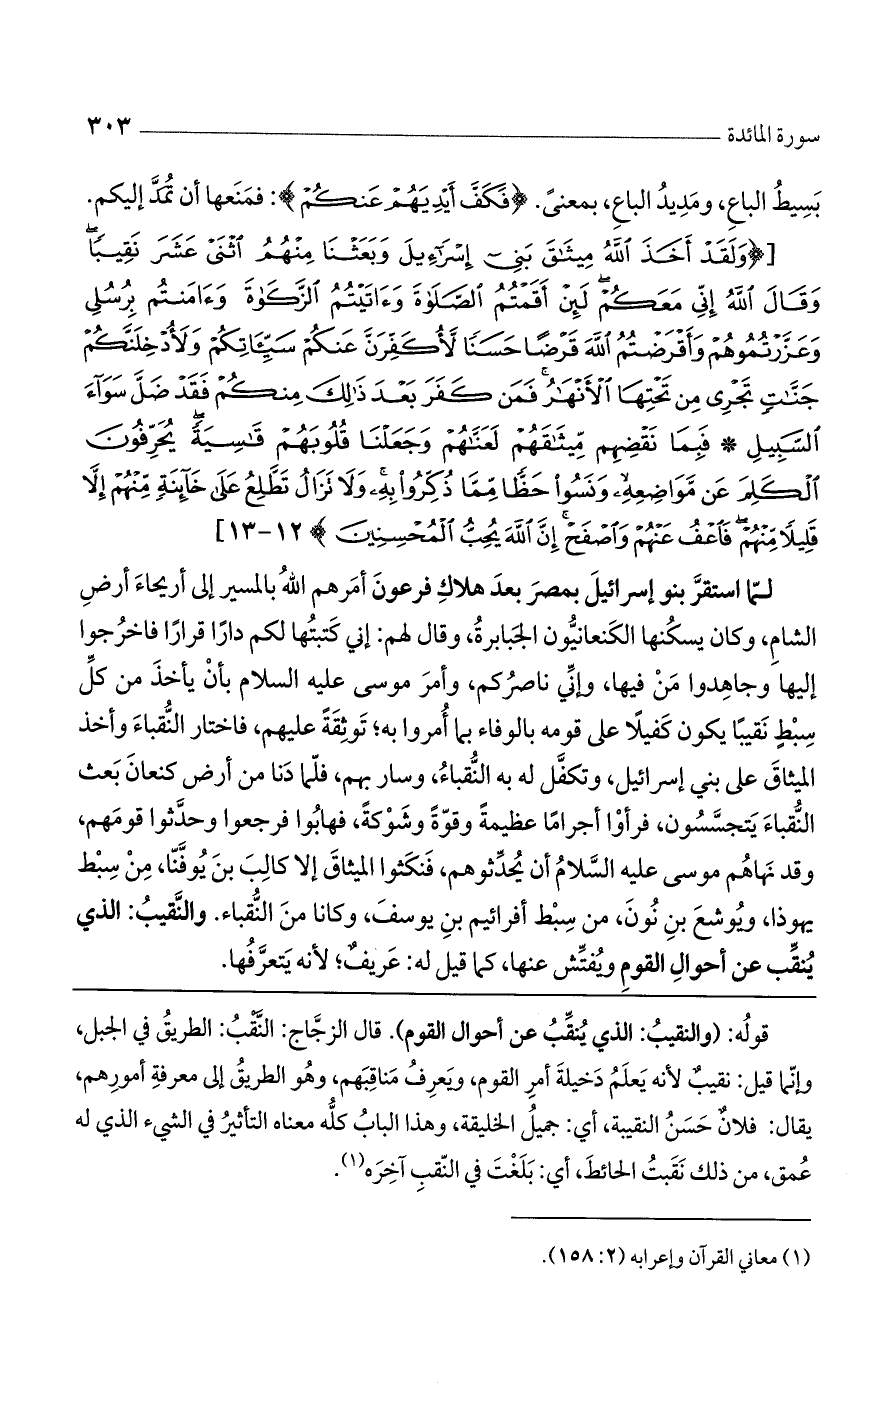 سورة المائدة ٣٠٣
بَسِيطُ الباعِ، ومَدِيدُ الباعِ، بمعنىً. ﴿فَكَفَّ أَيْدِيَهُمْ عَنكُمْ﴾: فمَنَعها أن تُمَدَّ إليكم.
[﴿وَلَقَدْ أَخَذَ ٱللَّهُ مِيثَٰقَ بَنِىٓ إِسْرَٰٓءِيلَ وَبَعَثْنَا مِنْهُمُ ٱثْنَىْ عَشَرَ نَقِيبًا ۖ
وَقَالَ ٱللَّهُ إِنِّى مَعَكُمْ ۖ لَئِنْ أَقَمْتُمُ ٱلصَّلَوٰةَ وَءَاتَيْتُمُ ٱلزَّكَوٰةَ وَءَامَنتُم بِرُسُلِى
وَعَزَّرْتُمُوهُمْ وَأَقْرَضْتُمُ ٱللَّهَ قَرْضًا حَسَنًا لَّأُكَفِّرَنَّ عَنكُمْ سَيِّـَٔاتِكُمْ وَلَأُدْخِلَنَّكُمْ
جَنَّٰتٍ تَجْرِى مِن تَحْتِهَا ٱلْأَنْهَٰرُ ۚ فَمَن كَفَرَ بَعْدَ ذَٰلِكَ مِنكُمْ فَقَدْ ضَلَّ سَوَآءَ
ٱلسَّبِيلِ * فَبِمَا نَقْضِهِم مِّيثَٰقَهُمْ لَعَنَّٰهُمْ وَجَعَلْنَا قُلُوبَهُمْ قَٰسِيَةً ۖ يُحَرِّفُونَ
ٱلْكَلِمَ عَن مَّوَاضِعِهِۦ ۙ وَنَسُوا۟ حَظًّا مِّمَّا ذُكِّرُوا۟ بِهِۦ ۚ وَلَا تَزَالُ تَطَّلِعُ عَلَىٰ خَآئِنَةٍ مِّنْهُمْ إِلَّا
قَلِيلًا مِّنْهُمْ ۖ فَٱعْفُ عَنْهُمْ وَٱصْفَحْ ۚ إِنَّ ٱللَّهَ يُحِبُّ ٱلْمُحْسِنِينَ﴾ ١٢-١٣]
لـمّا استقرَّ بنو إسرائيلَ بمصرَ بعدَ هلاكِ فرعونَ أمَرهم اللهُ بالمسير إلى أريحاءَ أرضِ
الشامِ، وكان يسكُنها الكَنعانيُّون الجَبابرةُ، وقال لهم: إني كَتبتُها لكم دارًا قرارًا فاخرُجوا
إليها وجاهِدوا مَنْ فيها، وإنِّي ناصرُكم، وأمرَ موسى عليه السلام بأنْ يأخذَ من كلِّ
سِبْطٍ نَقيبًا يكون كَفيلًا على قومه بالوفاء بما أُمروا به؛ تَوثِقَةً عليهم، فاختار النُّقباءَ وأخذ
الميثاقَ على بني إسرائيل، وتكفَّل له به النُّقباءُ، وسار بهم، فلّما دَنا من أرض كنعانَ بَعث
النُّقباءَ يَتجسَّسُون، فرأوْا أجرامًا عظيمةً وقوّةً وشَوْكةً، فهابُوا فرجعوا وحدَّثوا قومَهم،
وقد نهاهُم موسى عليه السَّلامُ أن يُحدِّثوهم، فَنكَثوا الميثاقَ إلا كالِبَ بنَ يُوفَنّا، مِنْ سِبْط
يهوذا، ويُوشعَ بنِ نُونَ، من سِبْط أفرائيم بنِ يوسفَ، وكانا منَ النُّقباء. والنَّقيبُ: الذي
يُنقِّب عن أحوالِ القومِ ويُفتِّش عنها، كما قيل له: عَريفٌ؛ لأنه يَتعرَّفُها.
قولُه: (والنقيبُ: الذي يُنقِّبُ عن أحوال القوم). قال الزجَّاج: النَّقْبُ: الطريقُ في الجبل،
وإنّما قيل: نقيبٌ لأنه يَعلَمُ دَخيلةَ أمرِ القوم، ويَعرِفُ مَناقِبَهم، وهُو الطريقُ إلى معرفةِ أمورِهم،
يقال: فلانٌ حَسَنُ النقيبة، أي: جميلُ الخليقة، وهذا البابُ كلُّه معناه التأثيرُ في الشيء الذي له
عُمق، من ذلك نَقَبتُ الحائطَ، أي: بَلَغْتَ في النّقبِ آخِرَه(١).
(١) معاني القرآن وإعرابه (٢: ١٥٨).